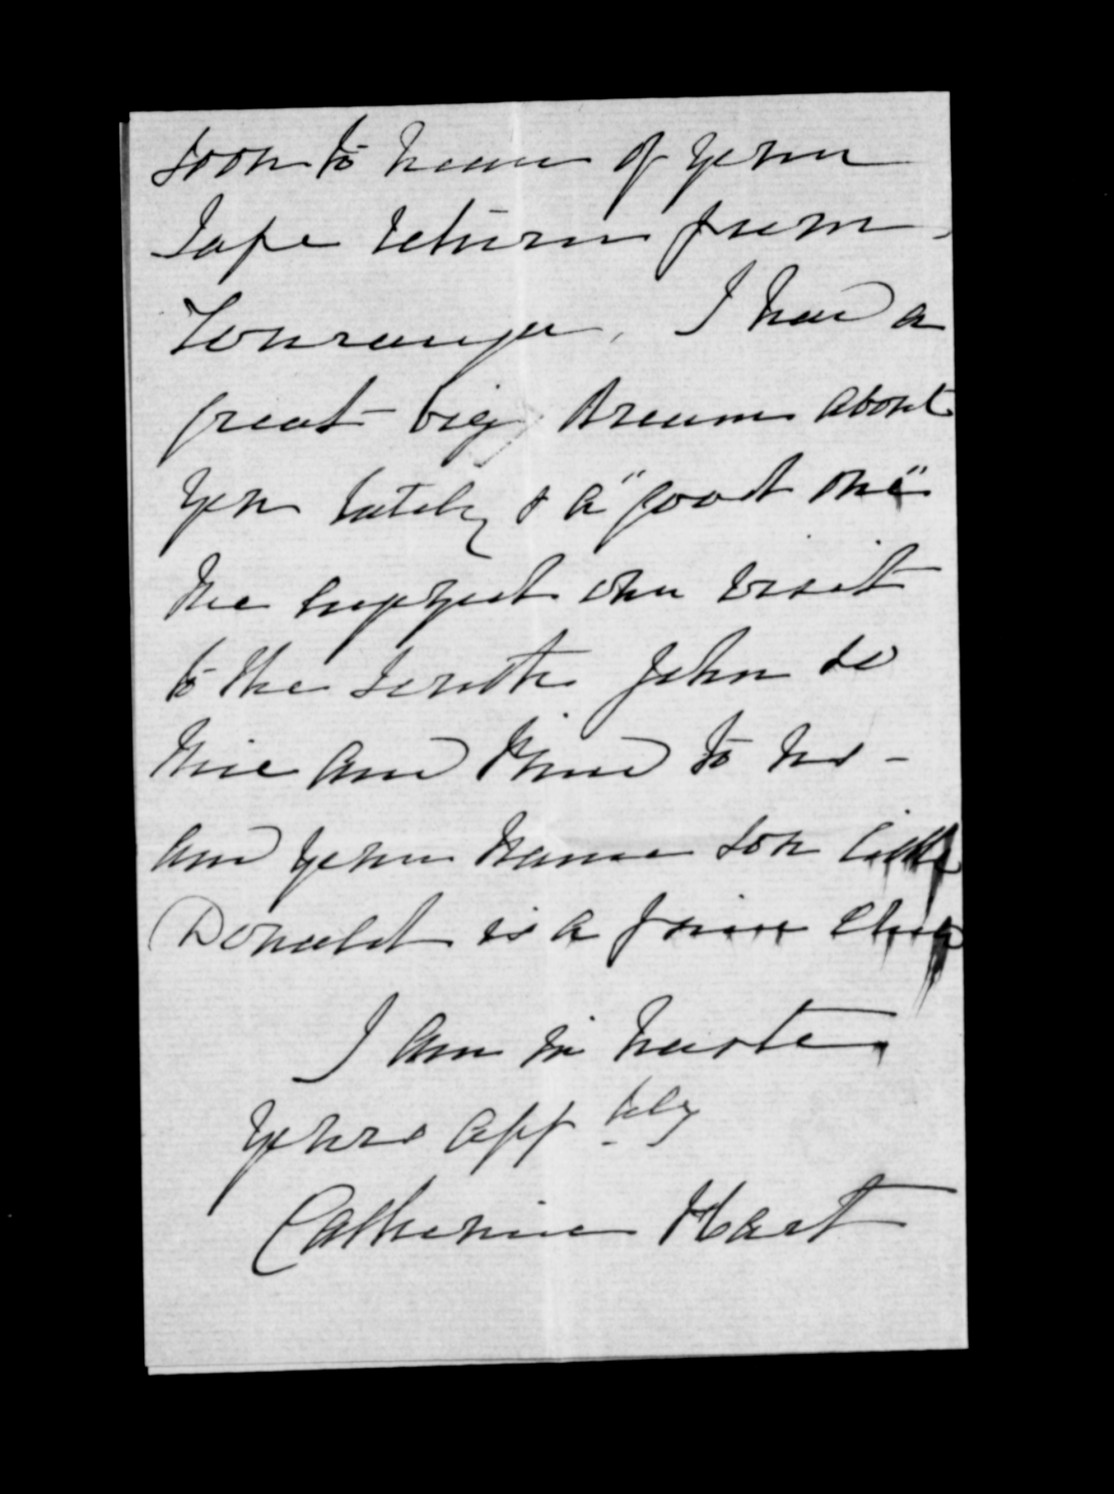 soon to hear of your
safe return from
Tauranga, I had a
great big dream about
you lately & a "good one"
We enjoyed our visit
to the South John so
nice and kind to us -
and your name son little
Donald is a fine chap
I am in haste
Yours aff tely
Catherine Hart